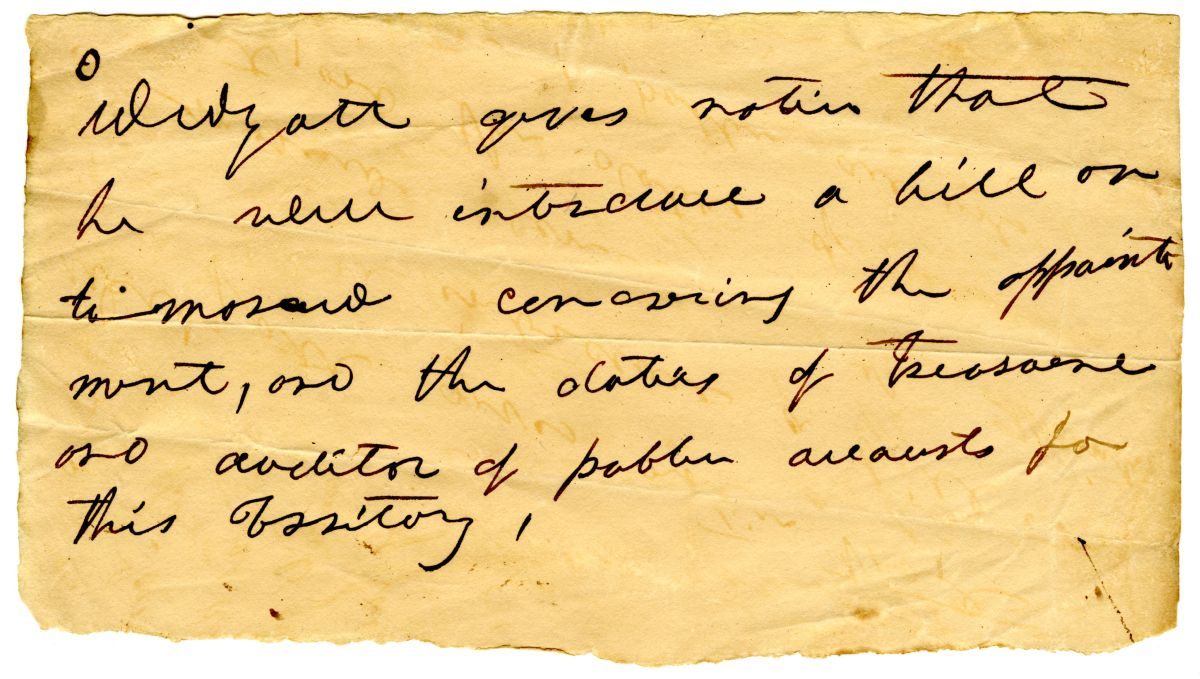 gives notice that
he will introduce a bill on
tomorrow concerning the appoint
ment, and the duties of Treasurer
and auditor of public accounts for
this Territory,